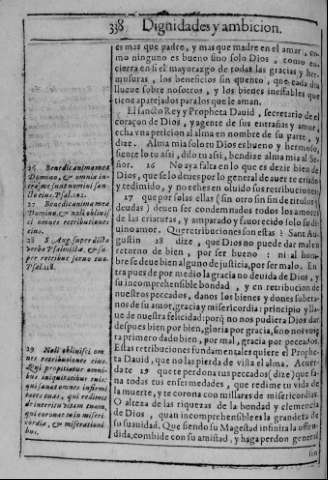 338 Dignidades y ambicion.
es mas que padre, y mas que madre en el amar, co-
mo ninguno es bueno sino solo Dios, como en-
cierra en si el mayorazgo de todas las gracias y her-
mosuras, los beneficios sin quento, que cada dia
llueue sobre nosotros, y los bienes inestables que
tiene aparejados para los que le aman.
El sancto Rey y Propheta Dauid, secretario del
coraçon de Dios, y agente de sus entrañas y amor,
echa vna peticion al alma en nombre de su parte, y
dize. Alma mia solo tu Dios es bueno y hermoso,
siente lo tu assi, dilo tu assi, bendize alma mia al Se-
ñor. 26 No aya falta en lo que es dezir bien de
Dios, que se lo deues por lo general de auerte criado
y redimido, y no eches en oluido sus retribuciones,
27 que por solas ellas (sin otro sin fin de titulos y
deudas) deuen ser condemnados todos los amores
de las criaturas, y amparado y fauorecido solo su di-
uino amor. Que retribuciones son estas? Sant Au-
gustin 28 dize, que Dios no puede dar mal en
retorno de bien, por ser bueno: ni al hom-
bre se deue bien alguno de justicia, por ser malo. En-
tra pues de por medio la gracia no deuida de Dios, y
su incomprehensible bondad, y en retribucion de
nuestros peccados, danos los bienes y dones subera-
nos de su amor, gracia y misericordia: principio y lla-
ue de nuestra felicidad; porq no nos pudiera Dios dar
despues bien por bien, gloria por gracia, si no nos vuie-
ra primero dado bien, por mal, gracia por peccados.
Estas retribuciones fundamentales quiere el Prophe-
ta Dauid, que no las pierda de vista el alma. Acuer-
date 29 que te perdona tus peccados (dize) que sa-
na todas tus enfermedades, que redime tu vida de
la muerte, y te corona con millares de misericordias.
O alteza de las riquezas de la bondad y clemencia
de Dios, quan incomprehensible es la grandeza de
su suauidad. Que siendo su Magestad infinita la offen-
dida, combide con su amistad, y haga perdon general
sin
26 Benedic anima mea
Domino, & omnia in-
tra me sunt nomini san-
cto eius. Psal. 102.
27 Benedic anima mea
Domino, & noli obliuis-
ci omnes retributiones
eius.
28 S. Aug. super dicta
verba Psalmistæ, & su-
per retribue seruo tuo.
Psal. 118.
29 Noli obliuisci om-
nes retributiones eius,
Qui propitiatur omni-
bus iniquitatibus tuis:
qui sanat omnes infirmi-
tates tuas, qui redimit
de interitu vitam tuam,
qui coronat te in miseri
cordia, & miserationi
bus.